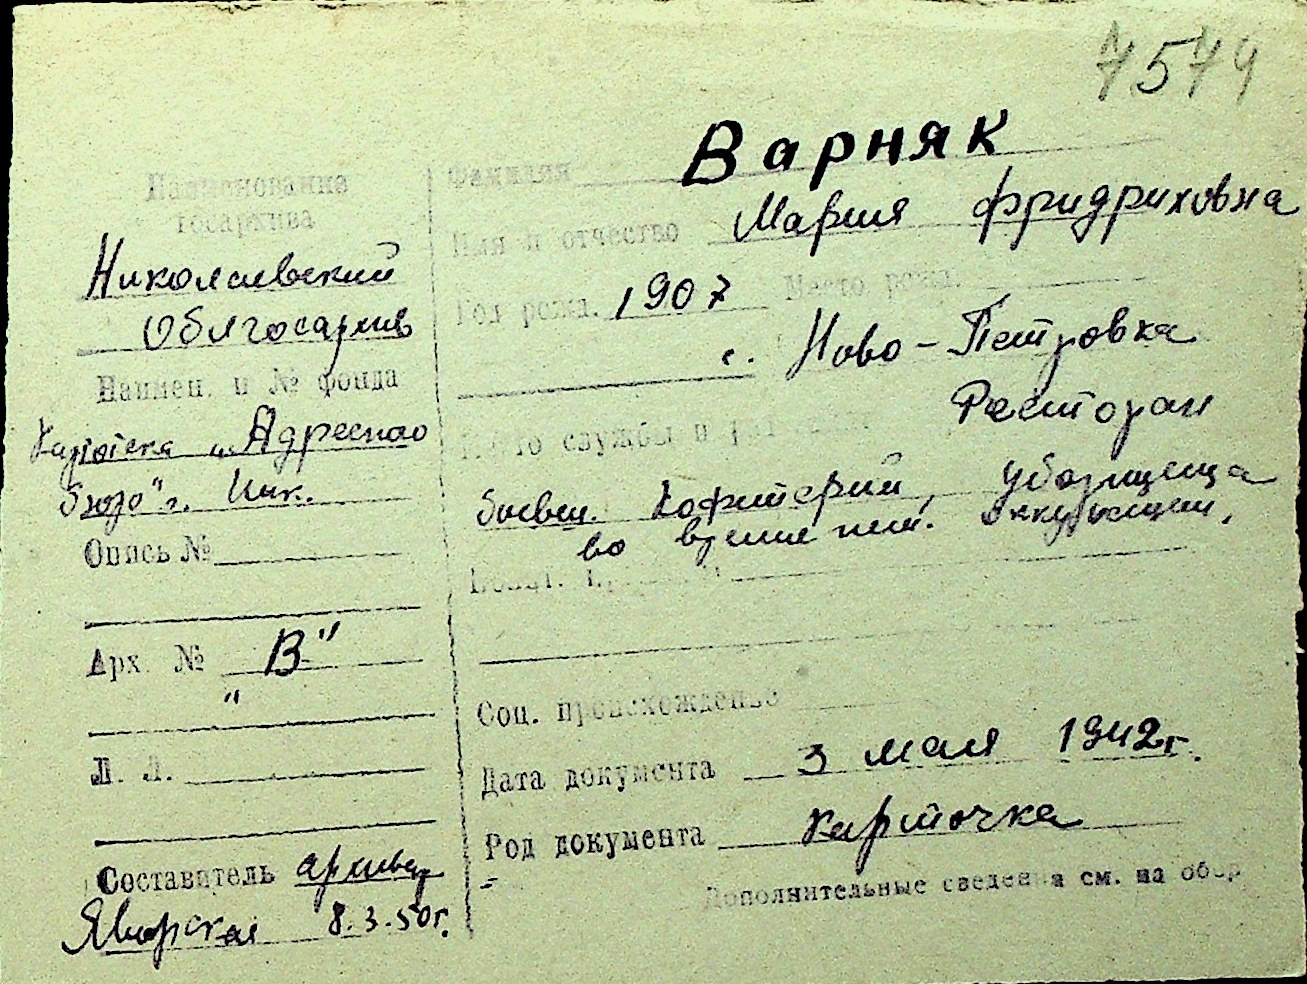 7579
Наименование
госархива
Николаевский
Облгосархив
Наимен. и № фонда
Картотека „Адресное
бюро" г. Ник.
Опись №
Арх. № „В"
"
Л. Л.
Составитель архивар
Яворская 8.3.50г.
Фамилия Варняк
Имя и отчество Мария Фридриховна
Год рожд. 1907 Место рожд.
с. Ново-Петровка
Место службы и Ресторан
боевш. Кофитерий, уборщица
во время нем. оккупации,
Соц. происхождение
Дата документа 3 мая 1942г.
Род документа карточка
Дополнительные сведения см. на обор